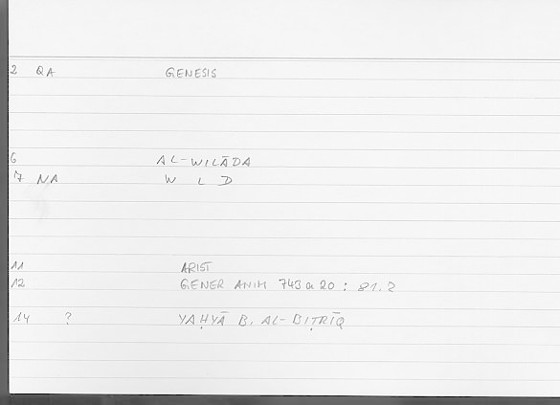 2 QA GENESIS
6 AL-WILĀDA
7 NA W L D
11 ARIST
12 GENER ANIM 743 a 20 : 81.2
14 ? YAḤYĀ B. AL-BIṬRĪQ